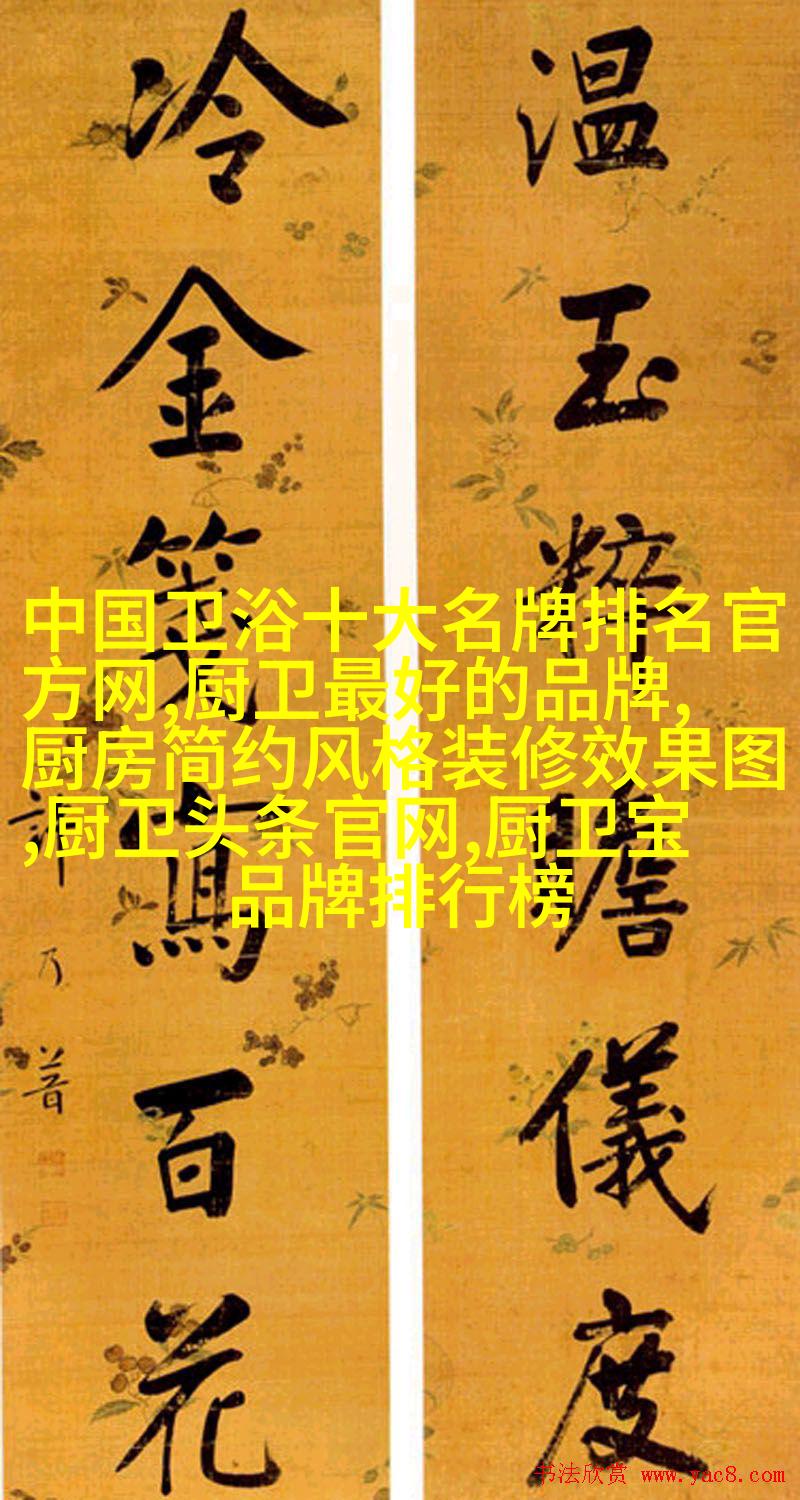 温玉粹瞻儀度
冷金箋寫百花
許乃普
中国卫浴十大名牌排名官
方网,厨卫最好的品牌,
厨房简约风格装修效果图
,厨卫头条官网,厨卫宝
品牌排行榜
书法欣赏 www.yac8.com